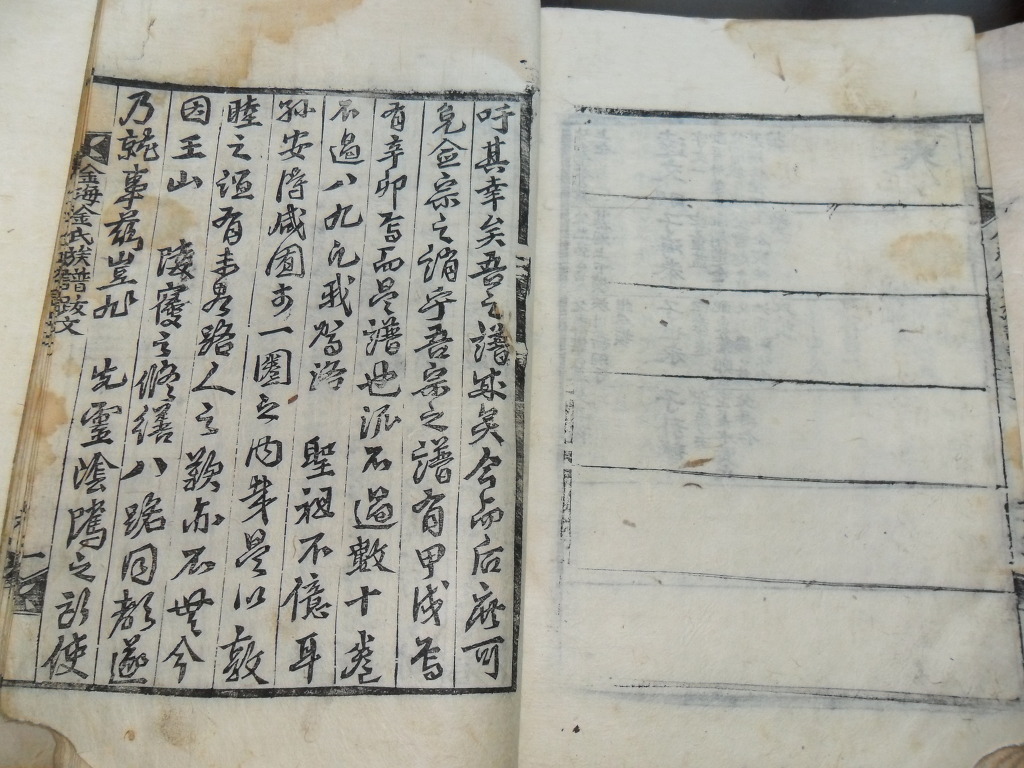 吁其幸矣吾之譜球矣今而后庶可
免僉宗之誚乎吾宗之譜有甲戌焉
有辛卯焉而是譜也派不過數十卷
不過八九允我駕洛 聖祖不億耳
孫安得咸囿於一圈之內哉是以敦
睦之誼有未免路人之歎亦不無今
因王山 陵寢之修繕八路同都遂
乃就事茲豈非 先靈陰隲之
使
金海金氏族譜跋文